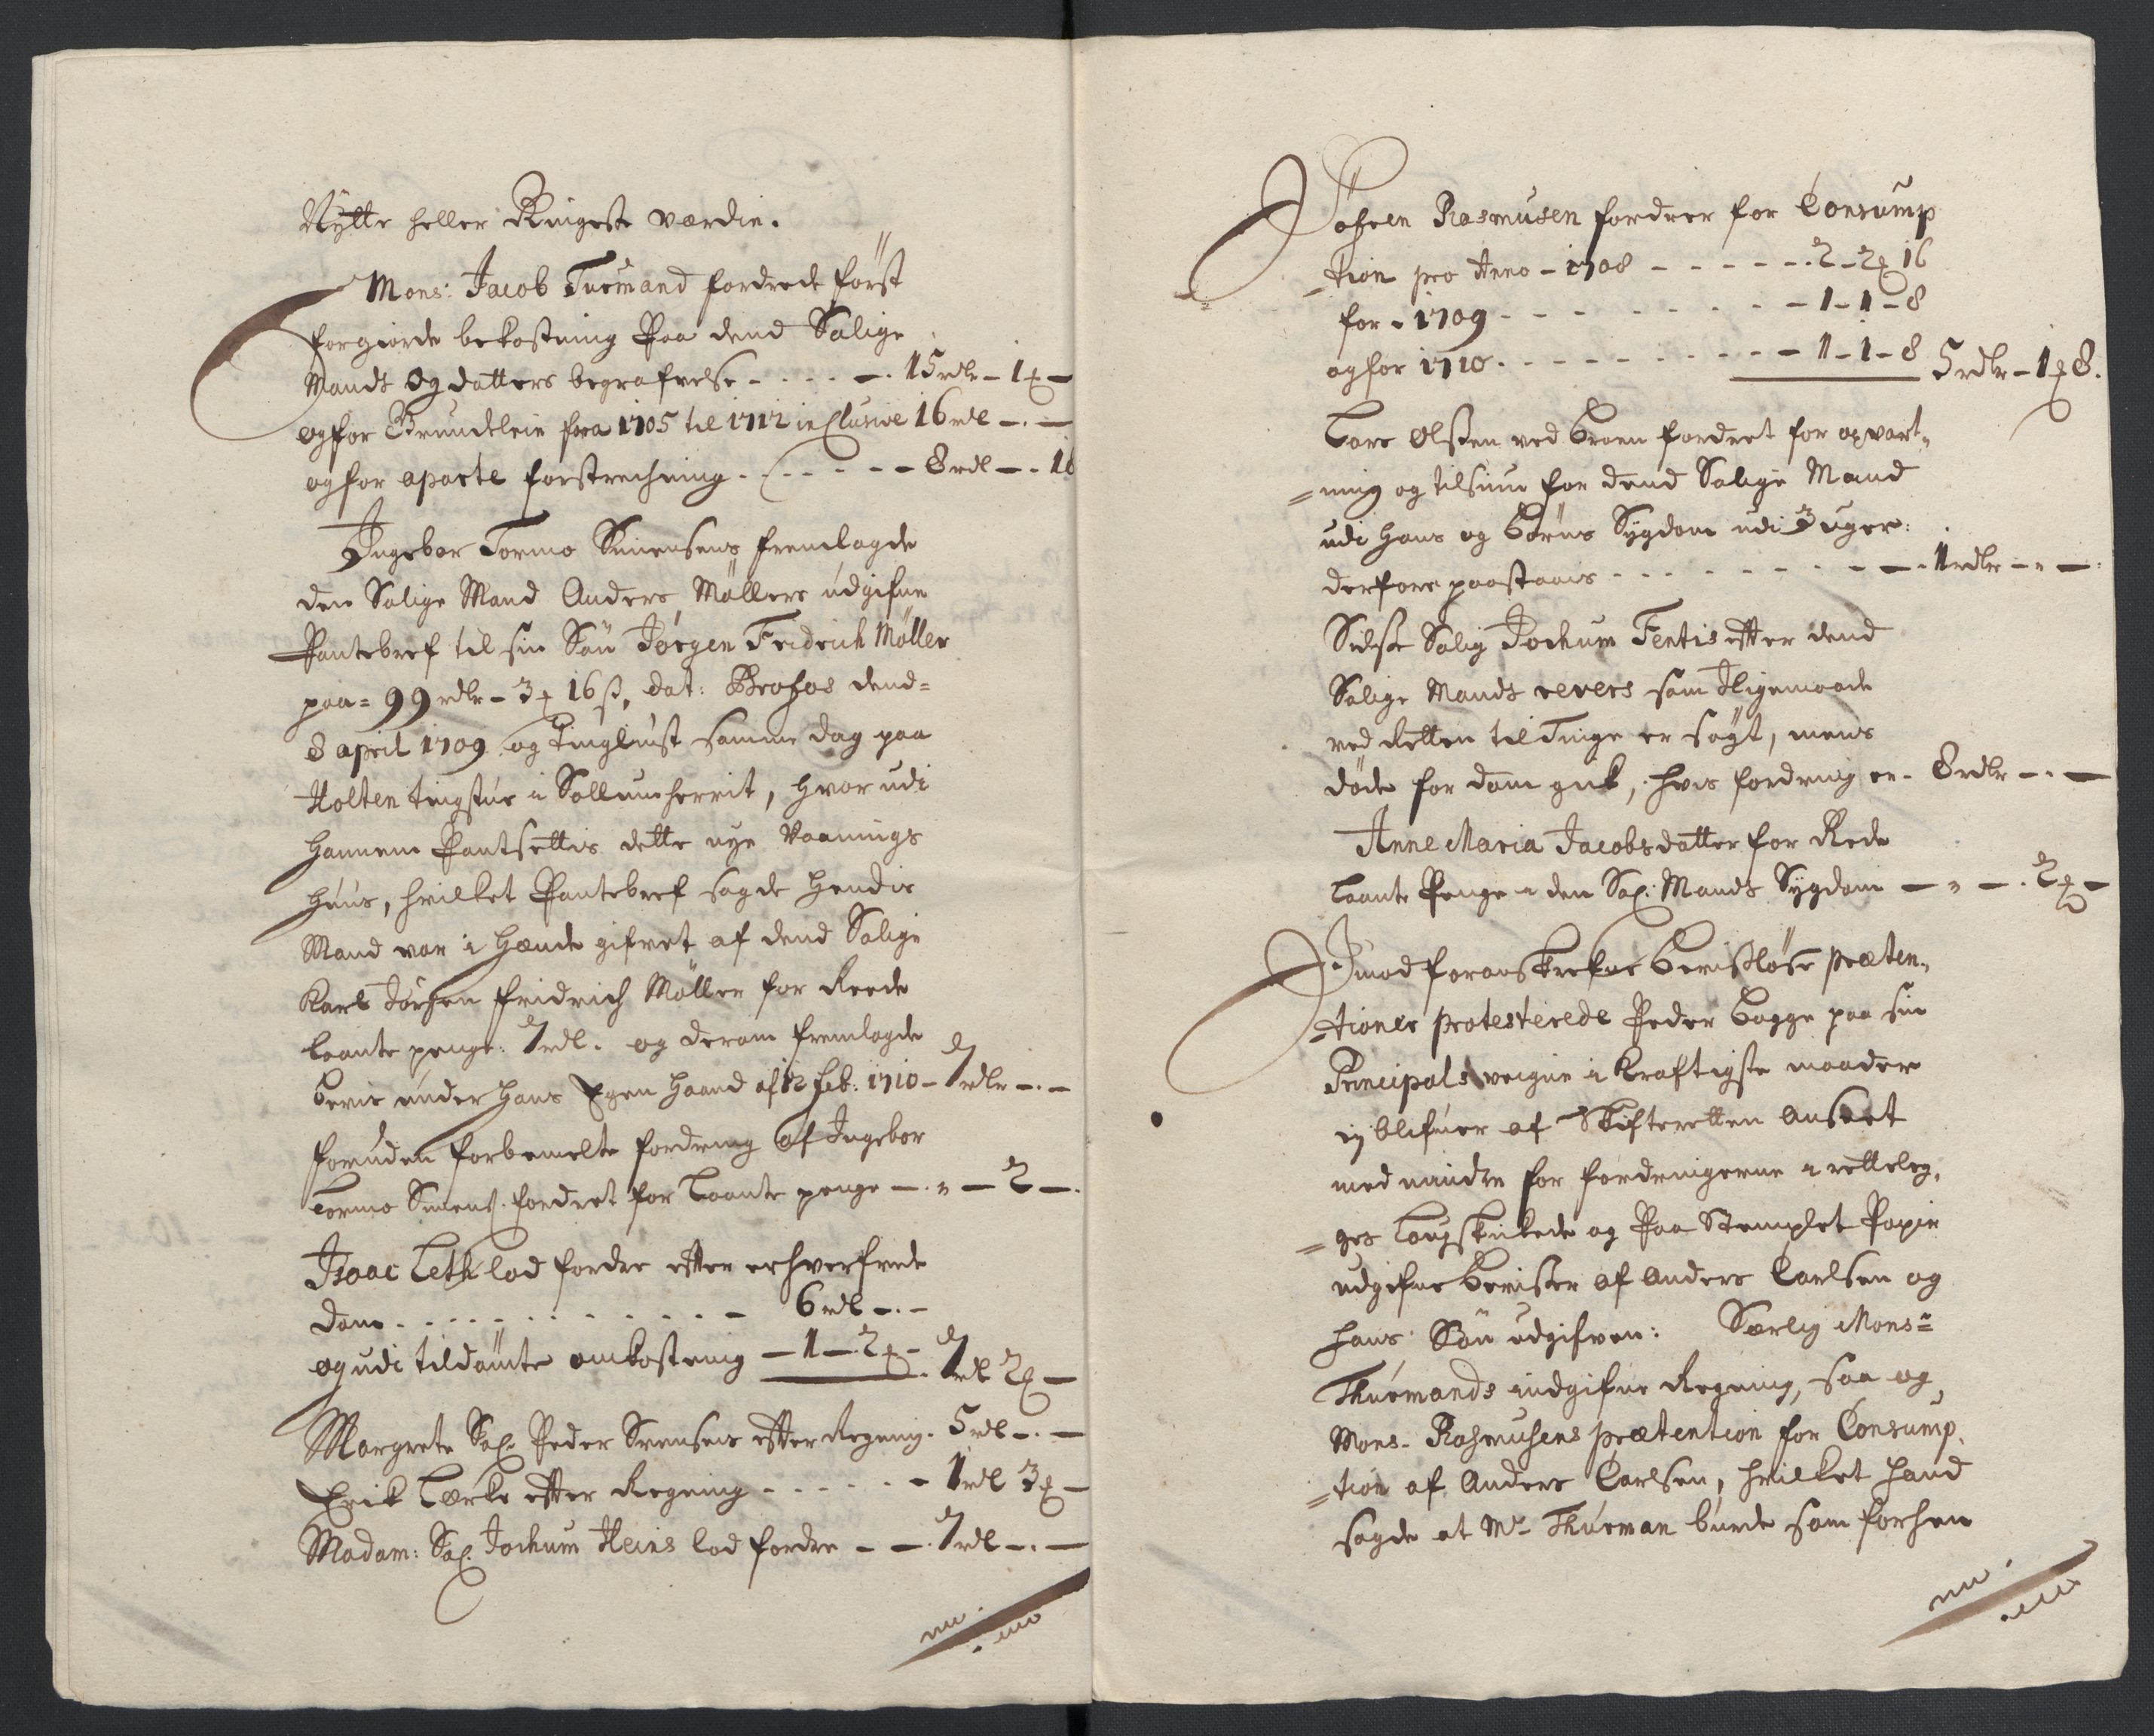 Nytte heller Ringeste værdie.
Mons: Jacob Turmand fordrede först
forgiorde bekostning Paa dend Salige
Mands og datters begrafvelse - - - - 15 rdlr - 1 -
og for Grundleie fra 1705 til 1712 inclusive 16 rdl - . -
og for aparte forstrechning - - - - - 8 rdl - - 16
Ingebor Tormo fremlagde
den Salige Mand Anders Möllers udgifne
Pantebref til sin Sön Jörgen Fridrich Möller
paa = 99 rdlr - 3 16 ß, dat: dend =
8 april 1709 og Tinglüst samme dag paa
Holten tingstue i Sollumherrit, hvor udi
hannem Pantsettis dette nye Vaanings
huus, hvilket Pantebref sagde hendis
Mand var i hænde gifvet af dend Salige
Karl Jörgen fridrich Möller for Reede
laante penge: 7 rdl. og derom fremlagde
bevis under hans Egen haand af 12 feb: 1710 - 7 rdlr - . -
foruden forbemelte fordring af Ingebor
Tormo fordret for Laante penge - . " - 2 - .
Isaac Leth lod fordre efter erhverfvede
dom - - - - - - - - - - 6 rdl - . -
og udi tildömte omkostning - 1 - 2 - 7 rdl 2 -
Margrete Sal. Peder Svensens efter Regning . 5 rdl - . -
Erik Lærke efter Regning - - - - - - 1 rdl 3 -
Madam: Sal. Jochum Heins lod fordre - - . 7 rdl - . -
Rasmusen fordrer for Consump
-tion pro Anno - 1708 - - - - - - 2 - 2 16
for - 1709 - - - - - - - - - 1 - 1 - 8
og for 1710 - - - - - - - - - 1 - 1 - 8 5 rdlr - 1 8.
Lars Olssen ved Broen fordret for opvart-
=ning og tilsiun for dend Salige Mand
udi hans og börns Sygdom udi 3 uger:
derfore paastaais - - - - - - - - - 1 rdlr - " - .
Sidste Salig Jochum Fentis efter dend
Salige Mands revers som Iligemaade
ved Retten til Tinge er sögt, mens
döde for dom gik, hvis fordring er - 8 rdlr - . -
Anne Maria Jacobsdatter for Rede
Laante Penge i den Sal: Mands Sygdom - " - . 2 -
Imod foranskrefne bevislöse præten-
-tioner protesterede Peder Bagge paa sin
Principals veigne i kraftigste maader
ej blifver af Skifteretten anseet
med mindre for fordringerne i rettelæg-
=ges laugskikede og Paa Stemplet Papir
udgifne beviser af Anders Carlsen og
hans Sön udgifven: Særlig Monsr
Thurmands indgifne Regning, saa og
Mons. Rasmusens prætention for Consump-
=tion af Anders Carlsen, hvilket hand
sagde at Mr Thurman burde som forhen